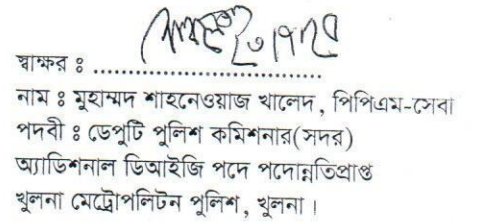 স্বাক্ষর ঃ ....................................
নাম ঃ মুহাম্মদ শাহনেওয়াজ খালেদ, পিপিএম-সেবা
পদবী ঃ ডেপুটি পুলিশ কমিশনার(সদর)
অ্যাডিশনাল ডিআইজি পদে পদোন্নতিপ্রাপ্ত
খুলনা মেট্রোপলিটন পুলিশ, খুলনা।